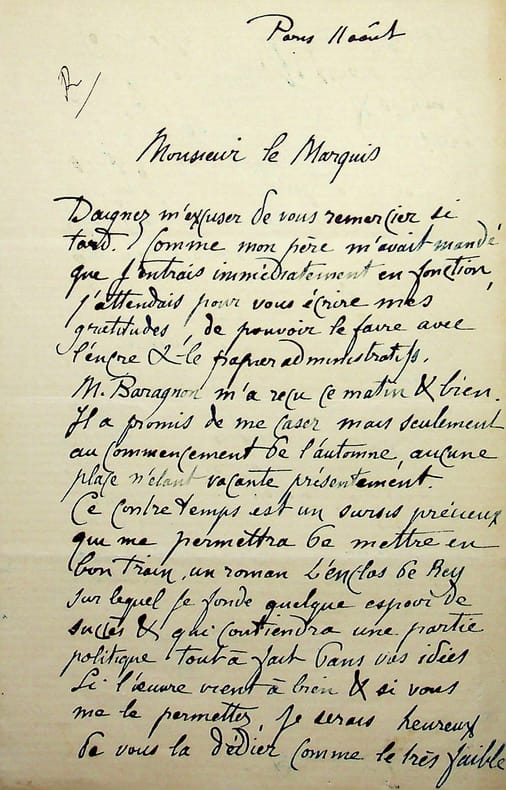 Paris 11 août
R/
Monsieur le Marquis
Daignez m'excuser de vous remercier si
tard. Comme mon père m'avait mandé
que j'entrais immédiatement en fonction,
j'attendais pour vous écrire mes
gratitudes, de pouvoir le faire avec
l'encre & le papier administratifs.
M. Baragnon m'a reçu ce matin & bien.
Il a promis de me caser mais seulement
au commencement de l'automne, aucune
place n'étant vacante présentement.
Ce contretemps est un sursis précieux
qui me permettra de mettre en
bon train, un roman L'enclos de Rey
sur lequel je fonde quelque espoir de
succès & qui contiendra une partie
politique tout à fait dans vos idées
Si l'œuvre vient à bien & si vous
me le permettez, je serais heureux
de vous la dédier comme le très faible